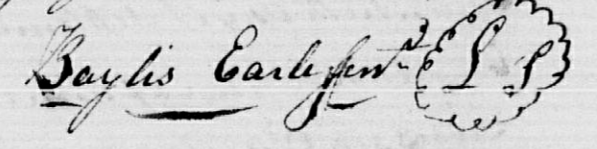 Baylis Earle Junr LS